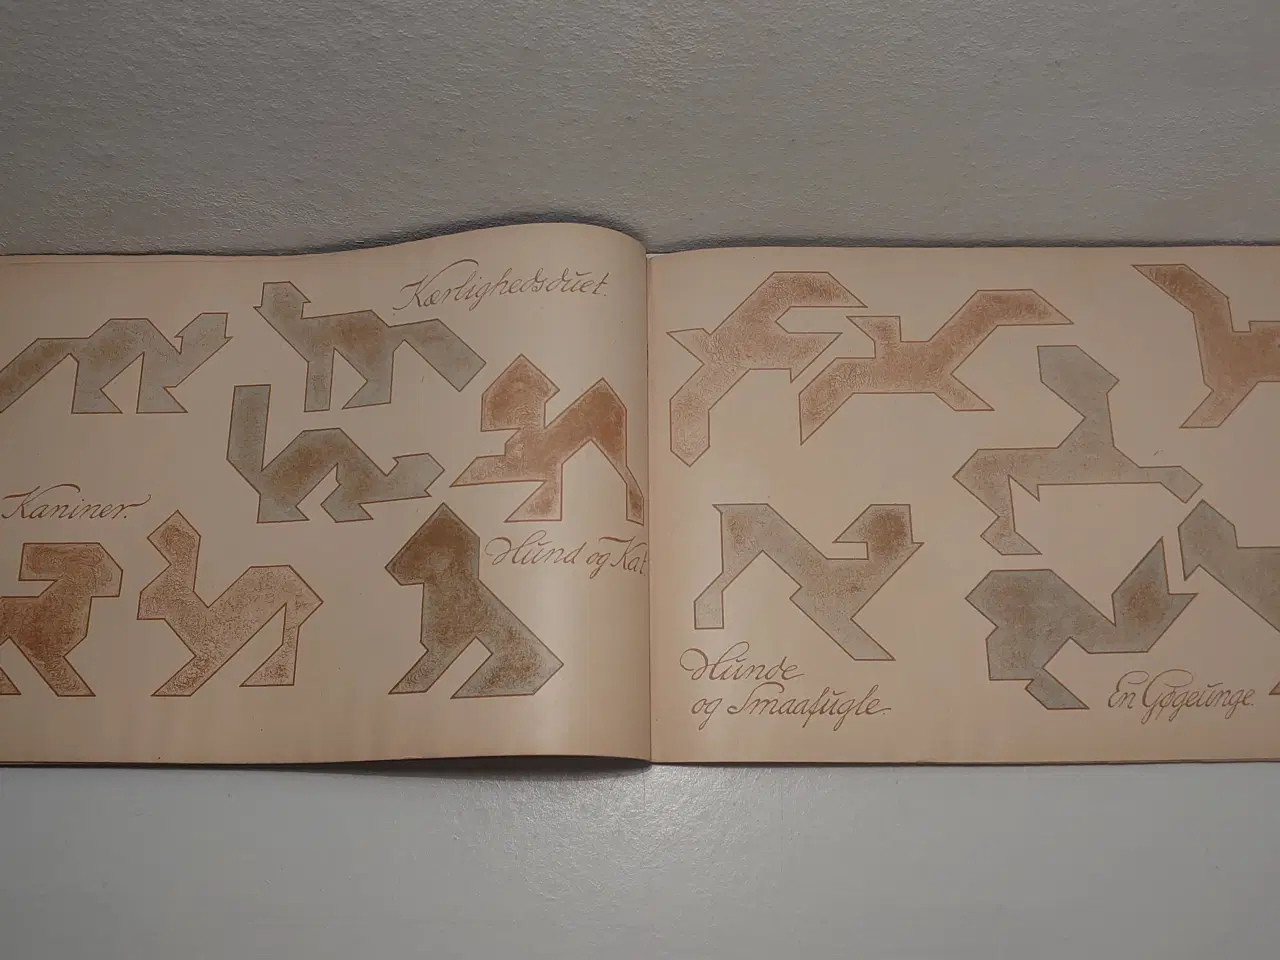 Kærlighedsduet.
Kaniner.
Hund og Kat.
Hunde
og Smaafugle.
En Gøgeunge.